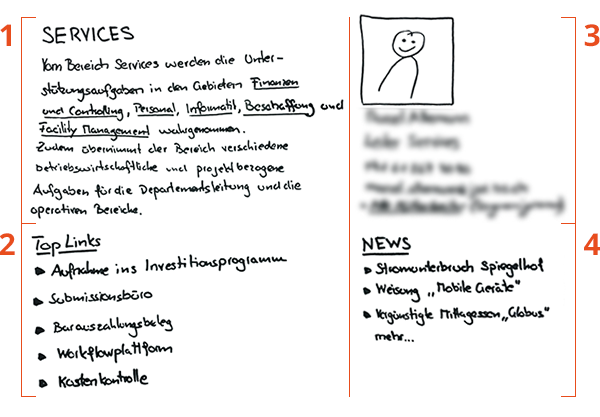 1
SERVICES
Vom Bereich Services werden die Unter-
stützungsaufgaben in den Gebieten Finanzen
und Controlling, Personal, Informatik, Beschaffung und
Facility Management wahrgenommen.
Zudem übernimmt der Bereich verschiedene
betriebswirtschaftliche und projektbezogene
Aufgaben für die Departementsleitung und die
operativen Bereiche.
2
Top Links
Aufnahme ins Investitionsprogramm
Submissionsbüro
Barauszahlungsbeleg
Workflowplattform
Kostenkontrolle
3
4
NEWS
Stromunterbruch Spiegelhof
Weisung „Mobile Geräte"
Vergünstigte Mittagessen „Globus"
mehr...